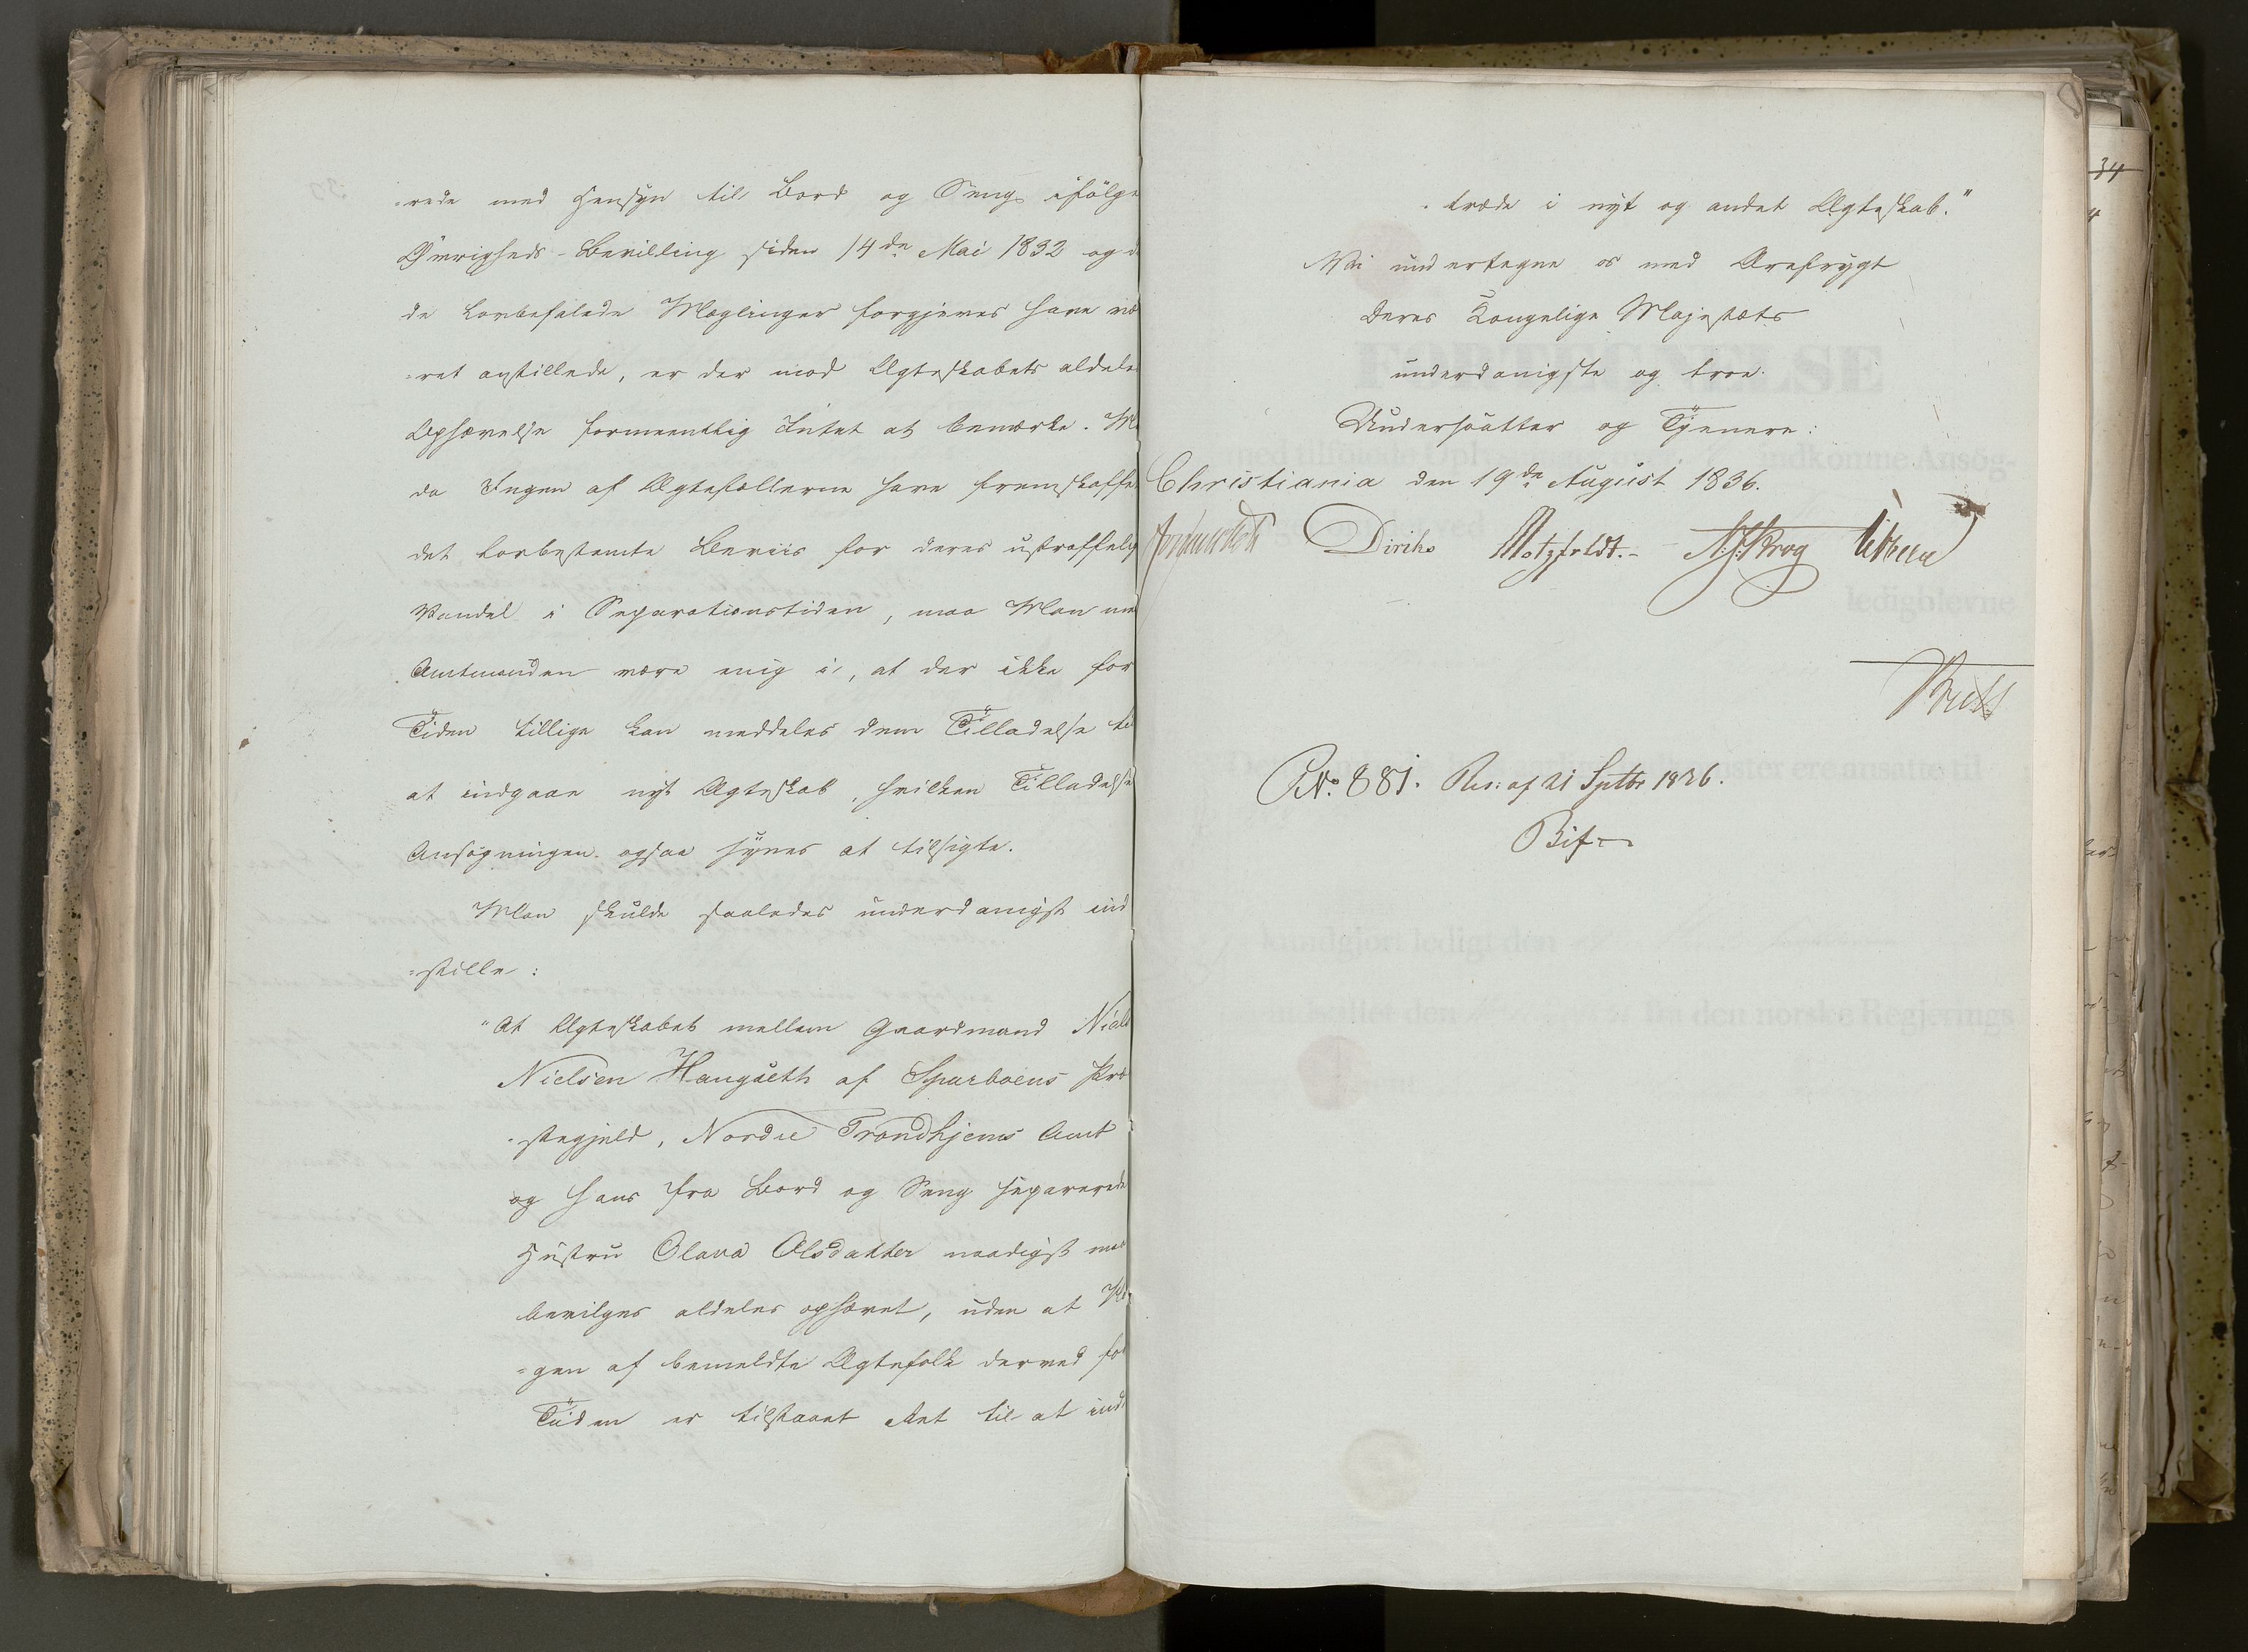 =rede med Hensyn til Bord og Seng ifölge
Øvrigheds-Bevilling siden 14de Mai 1832 og d
de Lovbefalede Mæglinger forgjeves have væ
=ret anstillede, er der mod Ægteskabets aldeles
Ophævelse formeentlig Intet at bemærke. Me
da Ingen af Ægtefællerne have fremskaffe
det lovbestemte Beviis for deres ustraffelig
Vandel i Separationstiden, maa Man me
Amtmanden være enig i, at der ikke for
Tiden tillige kan meddeles dem Tilladelse til
at indgaae nyt Ægteskab, hvilken Tilladelse
Ansögningen ogsaa synes at tilsigte.
Man skulde saaledes underdanigst ind
=stille:
"At Ægteskabet mellem Gaardmand Niels
Nielsen Haugseth af Sparboens Præ
=stegjeld, Nordre Trondhjems Amt
og hans fra Bord og Seng separerede
Hustru Olava Olsdatter naadigst maa
bevilges aldeles ophævet, uden at No
=gen af bemeldte Ægtefolk derved for
Tiden er tilstaaet Ret til at ind
=træde i nyt og andet Ægteskab."
Vi undertegne os med Ærefrygt
Deres Kongelige Majestæts
underdanigste og troe
Undersaatter og Tjenere:
Christiania den 19de August 1836.
Diriks Motzfeldt.- Krog
No. 881. Res: af 21 Septbr 1836.
Bif
34